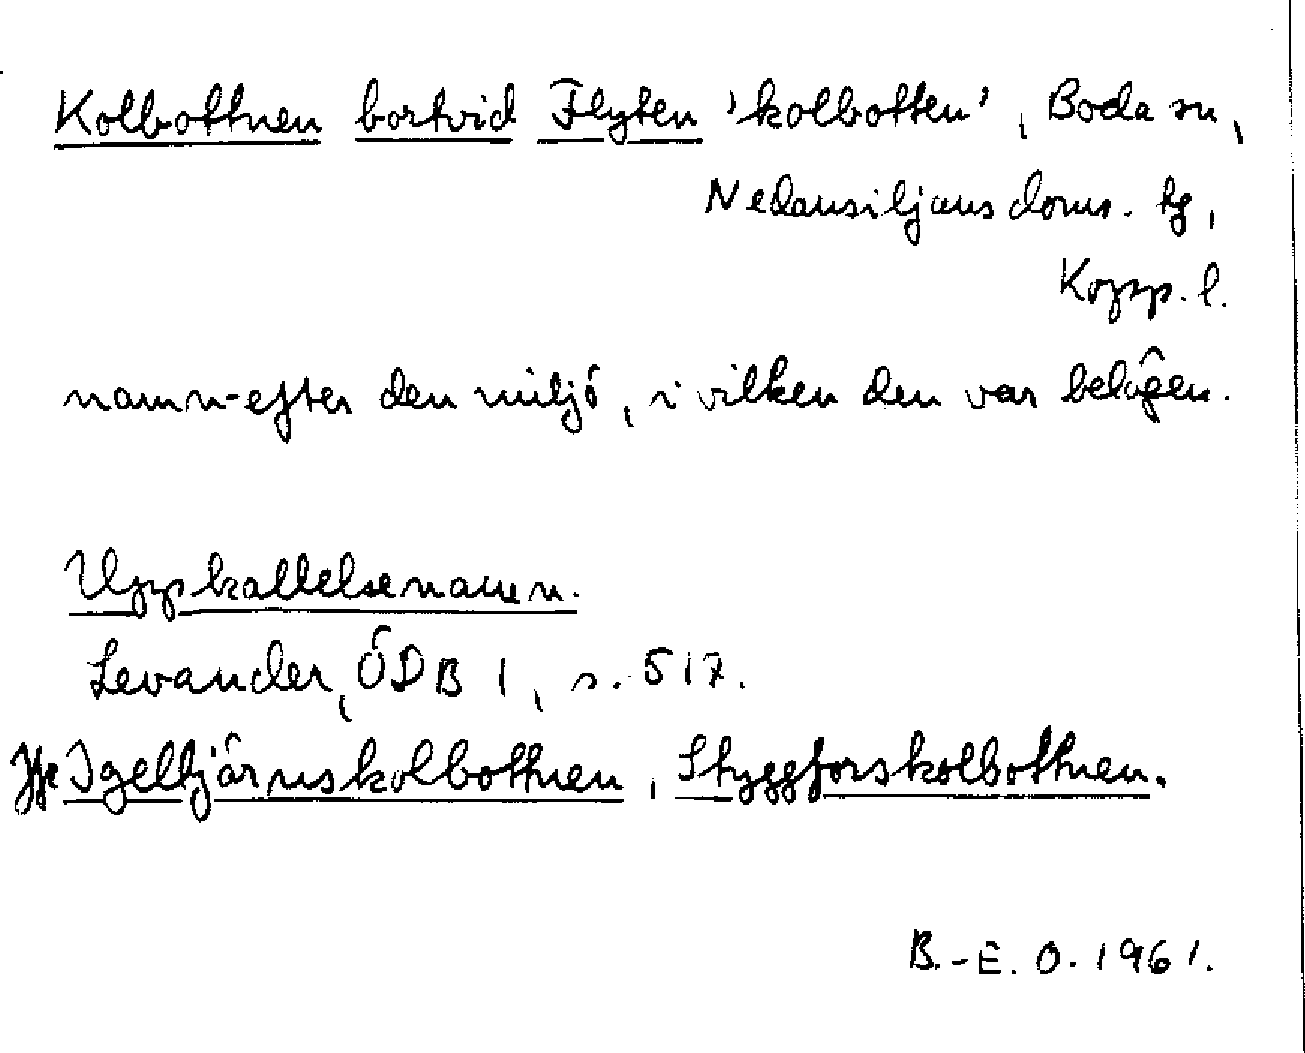 Kolbottnen bortvid Flyten 'kolbotten', Boda sn,
Nedansiljans doms. tg,
Kopp. l.
namn-efter den miljö, i vilken den var belägen.
Uppkallelsenamn.
Levander, ÖDB 1, s. 517.
Jfr Igeltjärnskolbottnen, Styggforskolbottnen.
B.-E. O. 1961.